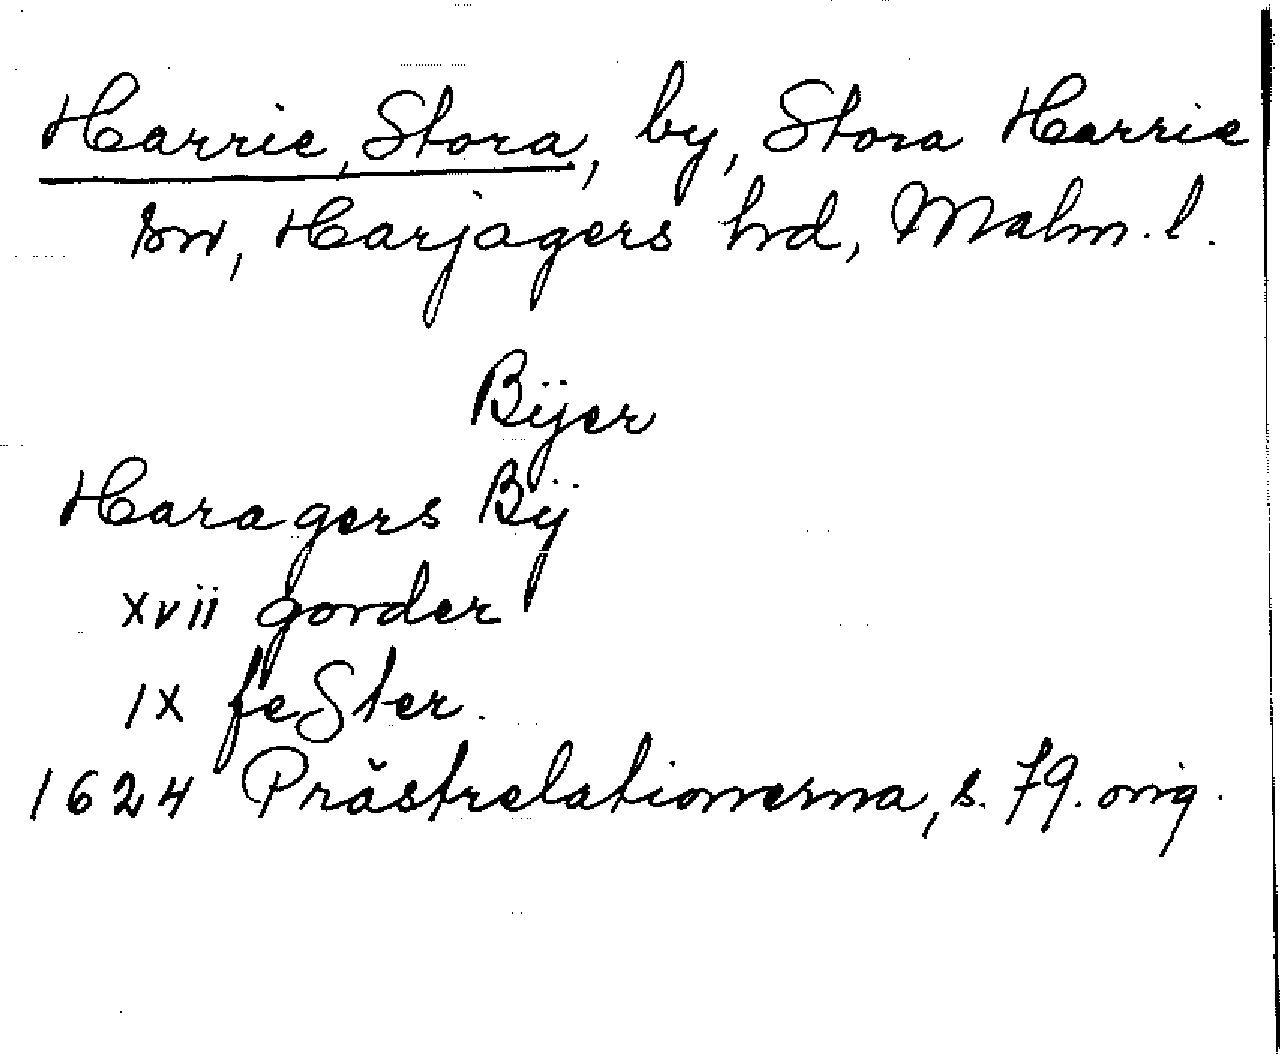 Harrie, Stora, by, Stora Harrie
sn, Harjagers hrd, Malm. l.
Bÿer
Haragers Bÿ
xvii gorder
ix fester.
1624 Prästrelationerna, s. 79. orig.